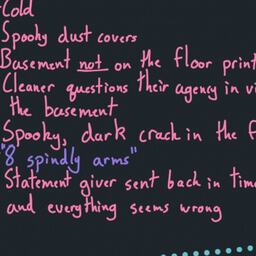 Cold
Spooky dust covers
Basement not on the floor print
Cleaner questions their agency in vi
the basement
Spooky, dark crack in the f
"8 spindly arms"
Statement giver sent back in time
and everything seems wrong